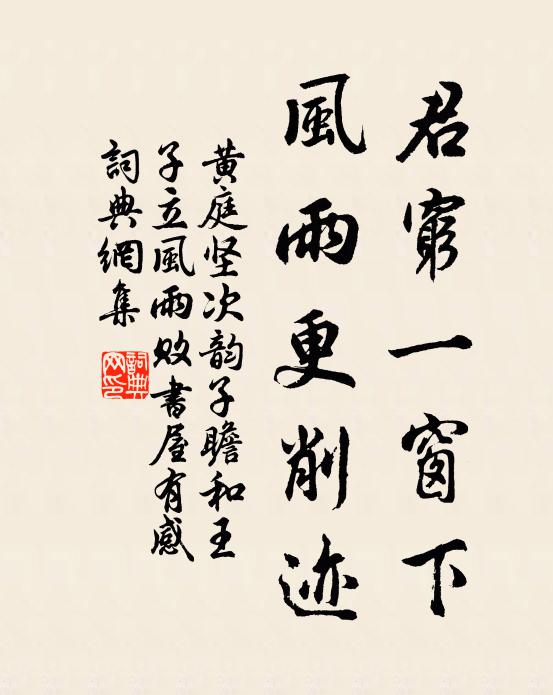 君窮一窗下
風雨更削迹
黄庭坚次韵子瞻和王
子立風雨敗書屋有感
詞典網集
詞典网印